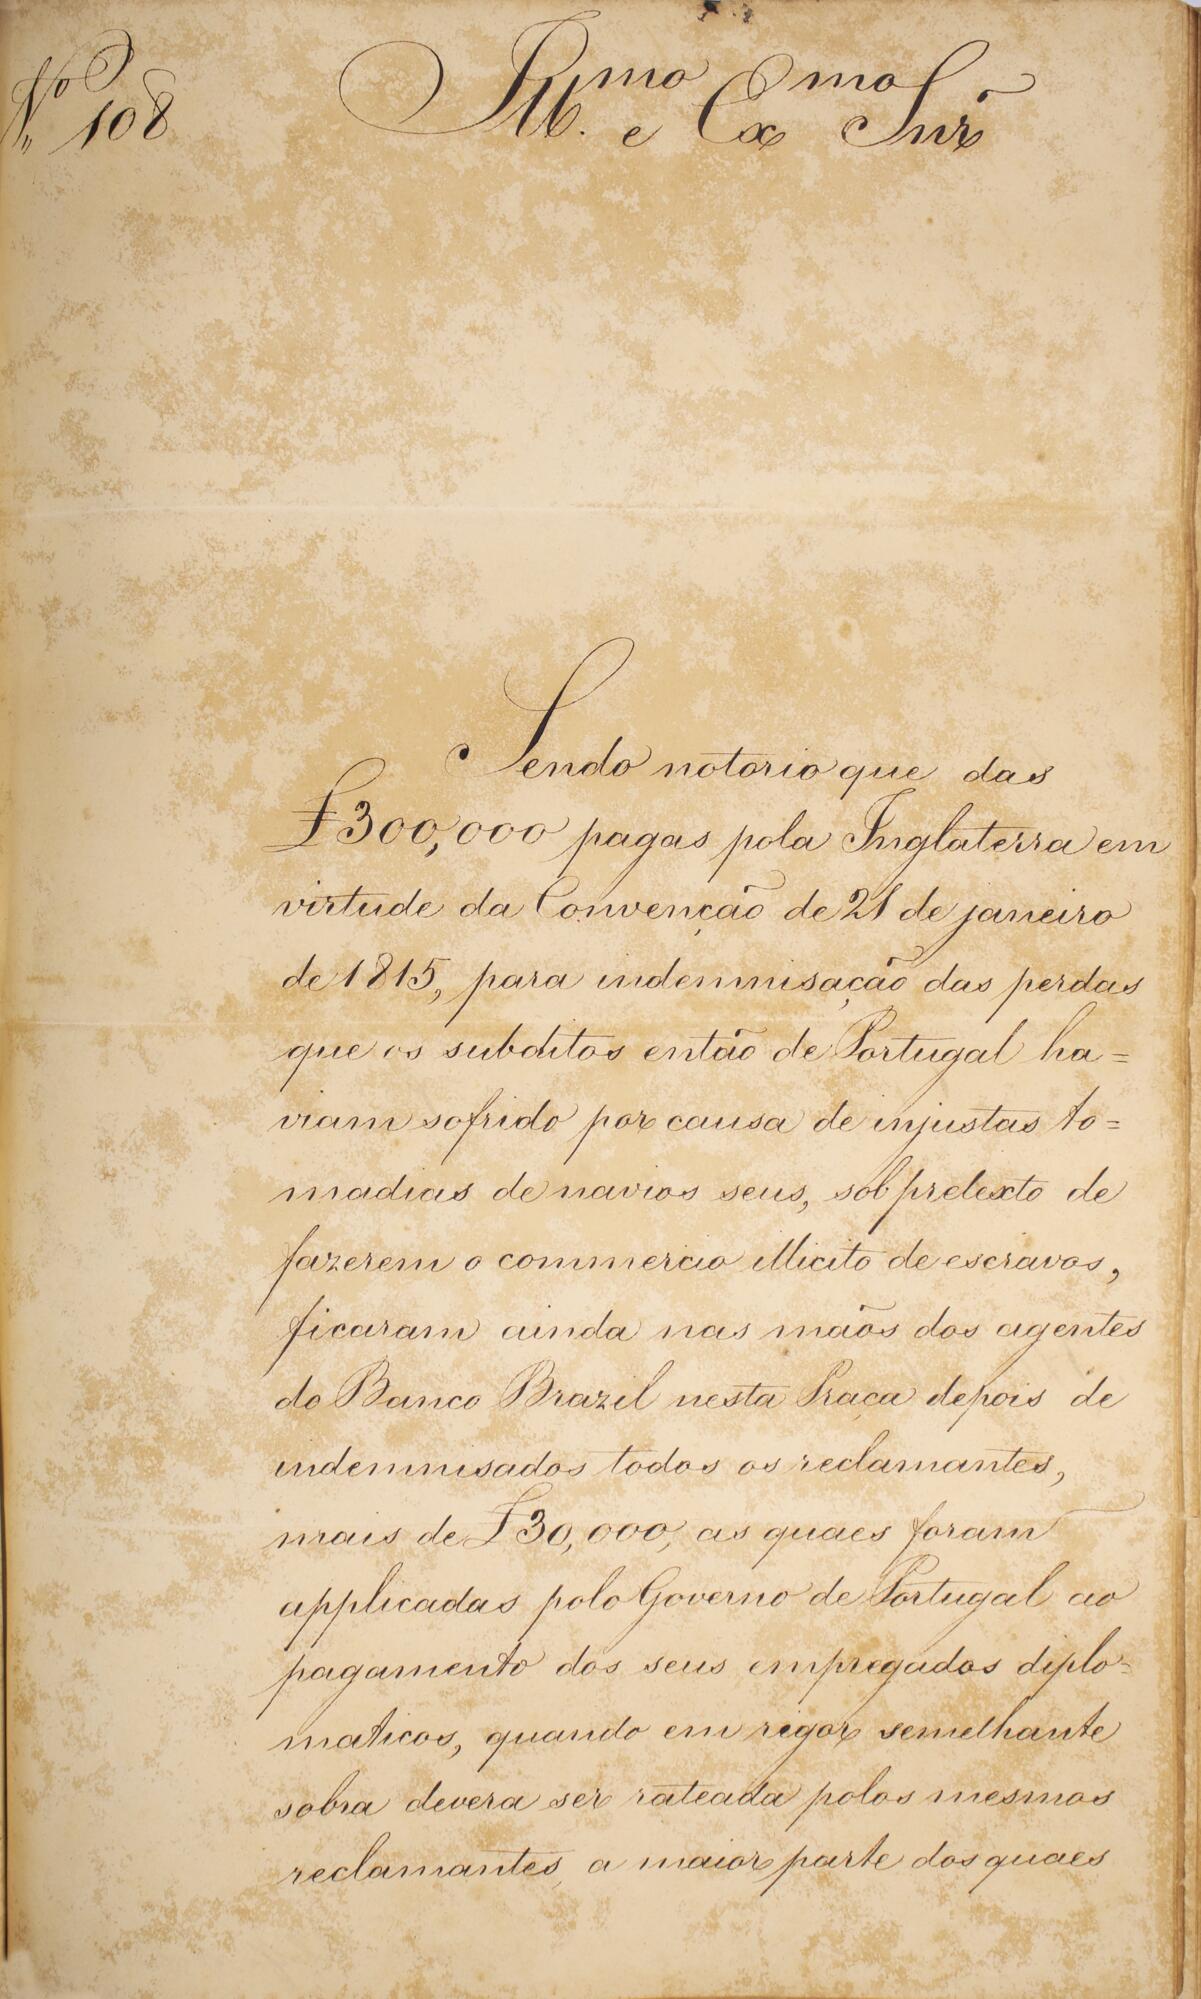 Nº 108
Illmo e Exmo Snr
Sendo notorio que das
£300,000 pagas pola Inglaterra em
virtude da Convenção de 21 de janeiro
de 1815, para indemnisação das perdas
que os subditos então de Portugal ha=
viam sofrido por causa de injustas to=
madias de navios seus, sob pretexto de
fazerem o commercio illicito de escravos,
ficaram ainda nas mãos dos agentes
do Banco Brazil nesta Praça depois de
indemnisados todos os reclamantes,
mais de £30,000, as quaes foram
applicadas polo Governo de Portugal ao
pagamento dos seus empregados diplo=
maticos, quando em rigor semelhante
sobra devera ser rateada polos mesmos
reclamantes, a maior parte dos quaes